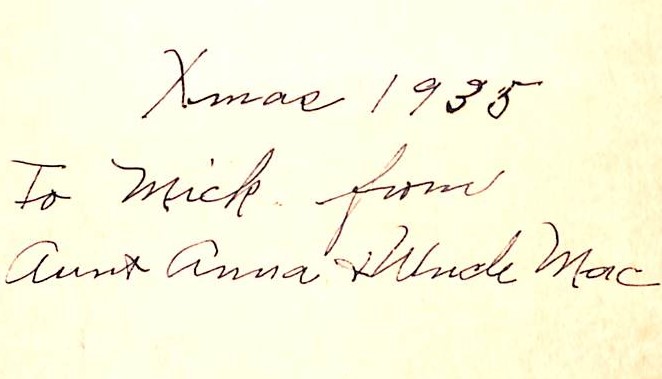 Xmas 1935
To Mick from
Aunt Anna & Uncle Mac